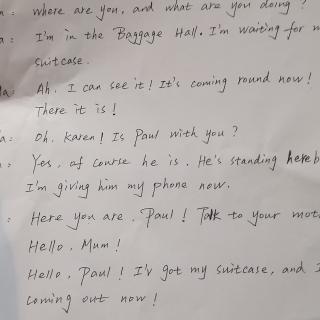 where are you, and what are you doing?
a: I'm in the Baggage Hall. I'm waiting for m
suitcase.
la: Ah, I can see it! It's coming round now!
There it is!
a: Oh, Karen! Is Paul with you?
Yes, of course he is. He's standing here b
I'm giving him my phone now.
: Here you are, Paul! Talk to your mot
Hello, Mum!
Hello, Paul! I'v got my suitcase, and I
coming out now!